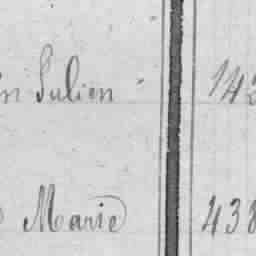 in Julien 142
Marie 438